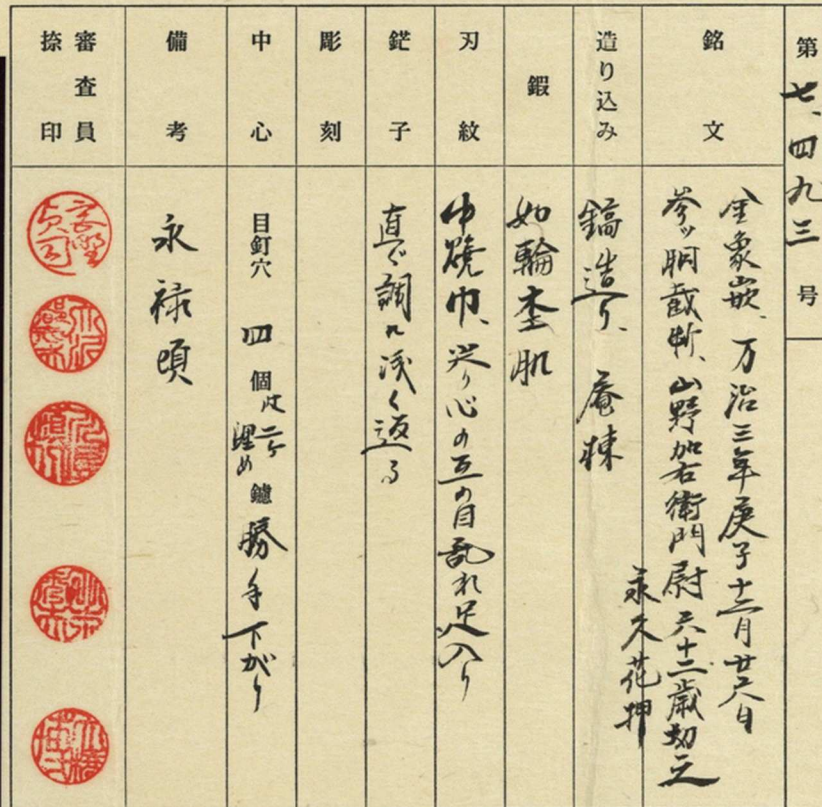 第七、四九三号
銘文
金象嵌、万治三年庚子十二月廿六日
参ツ胴截断、山野加右衛門尉六十二歳切之
永久花押
造り込み
鎬造り、庵棟
鍜
如輪杢肌
刃紋
中焼巾、逆り心の互の目乱れ足入り
鋩子
直ぐ調に浅く返る
彫刻
中心
目釘穴 四個 内二ケ埋め 鑢 勝手下がり
備考
永禄頃
審査員
捺印